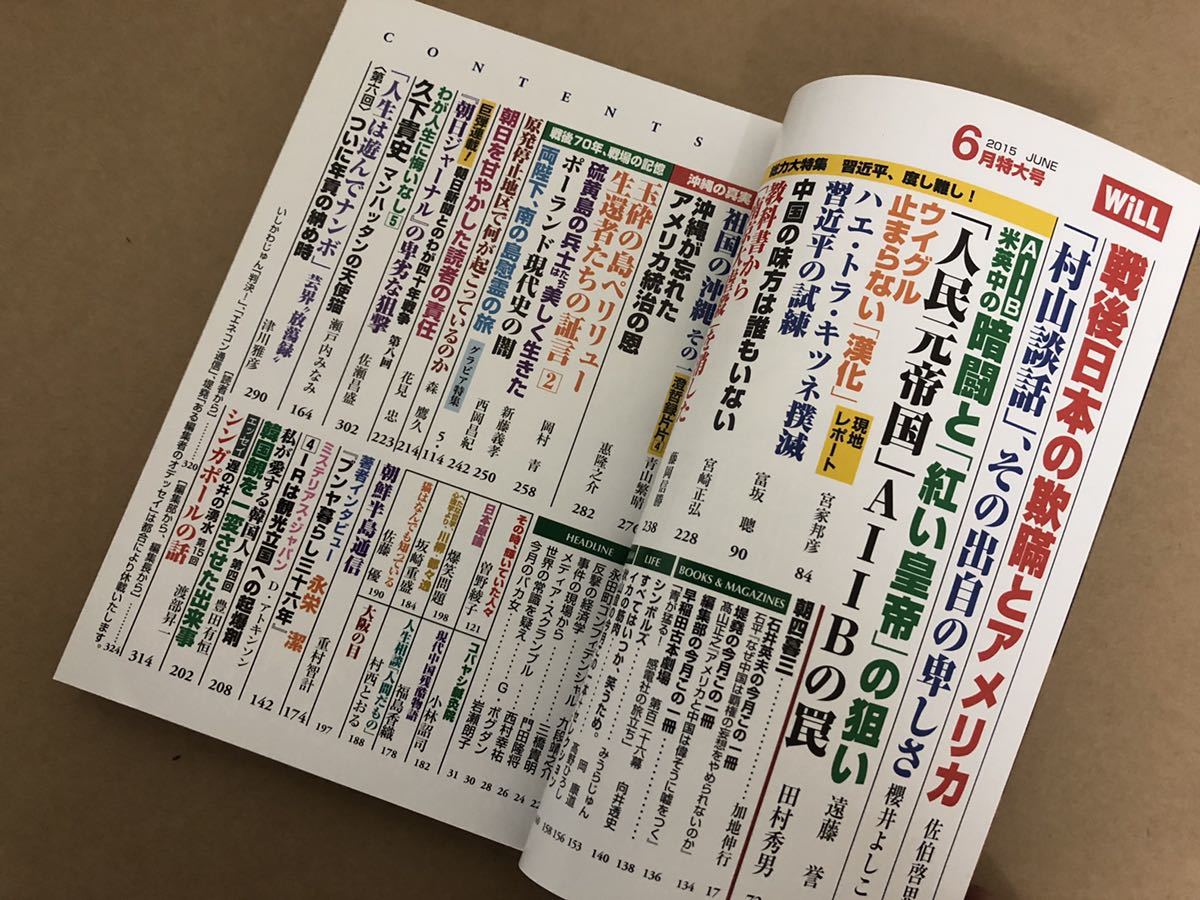 CONTENTS
WiLL
2015 JUNE
6月特大号
戦後日本の欺瞞とアメリカ
佐伯啓思
「村山談話」、その出自の卑しさ
櫻井よしこ
総力大特集 習近平、度し難し!
AIIB
米英中の暗闘と「紅い皇帝」の狙い
遠藤 誉
「人民元帝国」AIIBの罠
田村秀男
ウイグル
止まらない「漢化」
現地レポート
宮家邦彦 84
ハエ・トラ・キツネ撲滅
習近平の試練
富坂 聰 90
中国の味方は誰もいない
宮崎正弘 228
教科書から
沖縄の真実
祖国の沖縄 その一
青山繁晴
238
沖縄が忘れた
アメリカ統治の恩
惠隆之介
276
戦後70年、戦場の記憶
玉砕の島ペリリュー
生還者たちの証言 2
282
ポーランド現代史の闇
岡村 青
258
硫黄島の兵士たちは美しく生きた
新藤義孝
250
両陛下、南の島慰霊の旅
グラビア特集
原発停止地区で何が起こっているのか
西岡昌紀 242
朝日を甘やかした読者の責任
森 鷹久
5・114
巨弾連載!
朝日新聞とわが四十年戦争 第八回
『朝日ジャーナル』の卑劣な狙撃
佐瀬昌盛 223
花見 忠 214
わが人生に悔いなし 5
久下貴史 マンハッタンの天使猫
瀬戸内みなみ 302
「人生は遊んでナンボ」
〈第六回〉ついに年貢の納め時
"芸界"放蕩録
津川雅彦
164
290
朝四暮三
加地伸行 17
BOOKS & MAGAZINES
石井英夫の今月この一冊
石平『なぜ中国は覇権の妄想をやめられないのか』
134
堤堯の今月この一冊
高山正之『アメリカと中国は偉そうに嘘をつく』
136
編集部の今月この一冊
138
早稲田古本劇場 第百二十六幕
「青が猛る!感電社の旅立ち」
向井透史 140
LIFE
シンボルズ
すべてはいつか、笑うため。
みうらじゅん 153
イカの筋肉
岡 康道 156
高野ひろし
158
HEADLINE
永田町コンフィデンシャル
九段靖之介 22
反撃の経済学
三橋貴明 24
事件の現場から
門田隆将 26
メディア・スクランブル
西村幸祐 28
世界の常識を疑え
ボグダン 30
今月のバカ女
G・岩瀬朗子
31
その時、輝いていた人々
コバヤシ鍼灸院
小林詔司
182
日本の顔
曽野綾子 121
現代中国残酷物語
福島香織 178
川柳・都々逸
爆笑問題 198
猫はなんでも知っている
坂崎重盛 184
人生相談「人間だもの」
村西とおる 188
大阪の日
朝鮮半島通信
佐藤 優 190
重村智計
197
著者インタビュー
『ブンヤ暮らし三十六年』
永栄 潔
174
ミステリアス・ジャパン
4 IRは観光立国への起爆剤
D・アトキンソン 142
私が愛する韓国人 第四回
韓国観を一変させた出来事
豊田有恒 208
エッセイ 遇の井の湧水 第15回
シンガポールの話
渡部昇一 202
[読者から]……320
[編集部から、編集長から]……324
314
いしかわじゅん「判決!」「エネコン通信」、堤堯「ある編集者のオデッセイ」は都合により休載いたします。